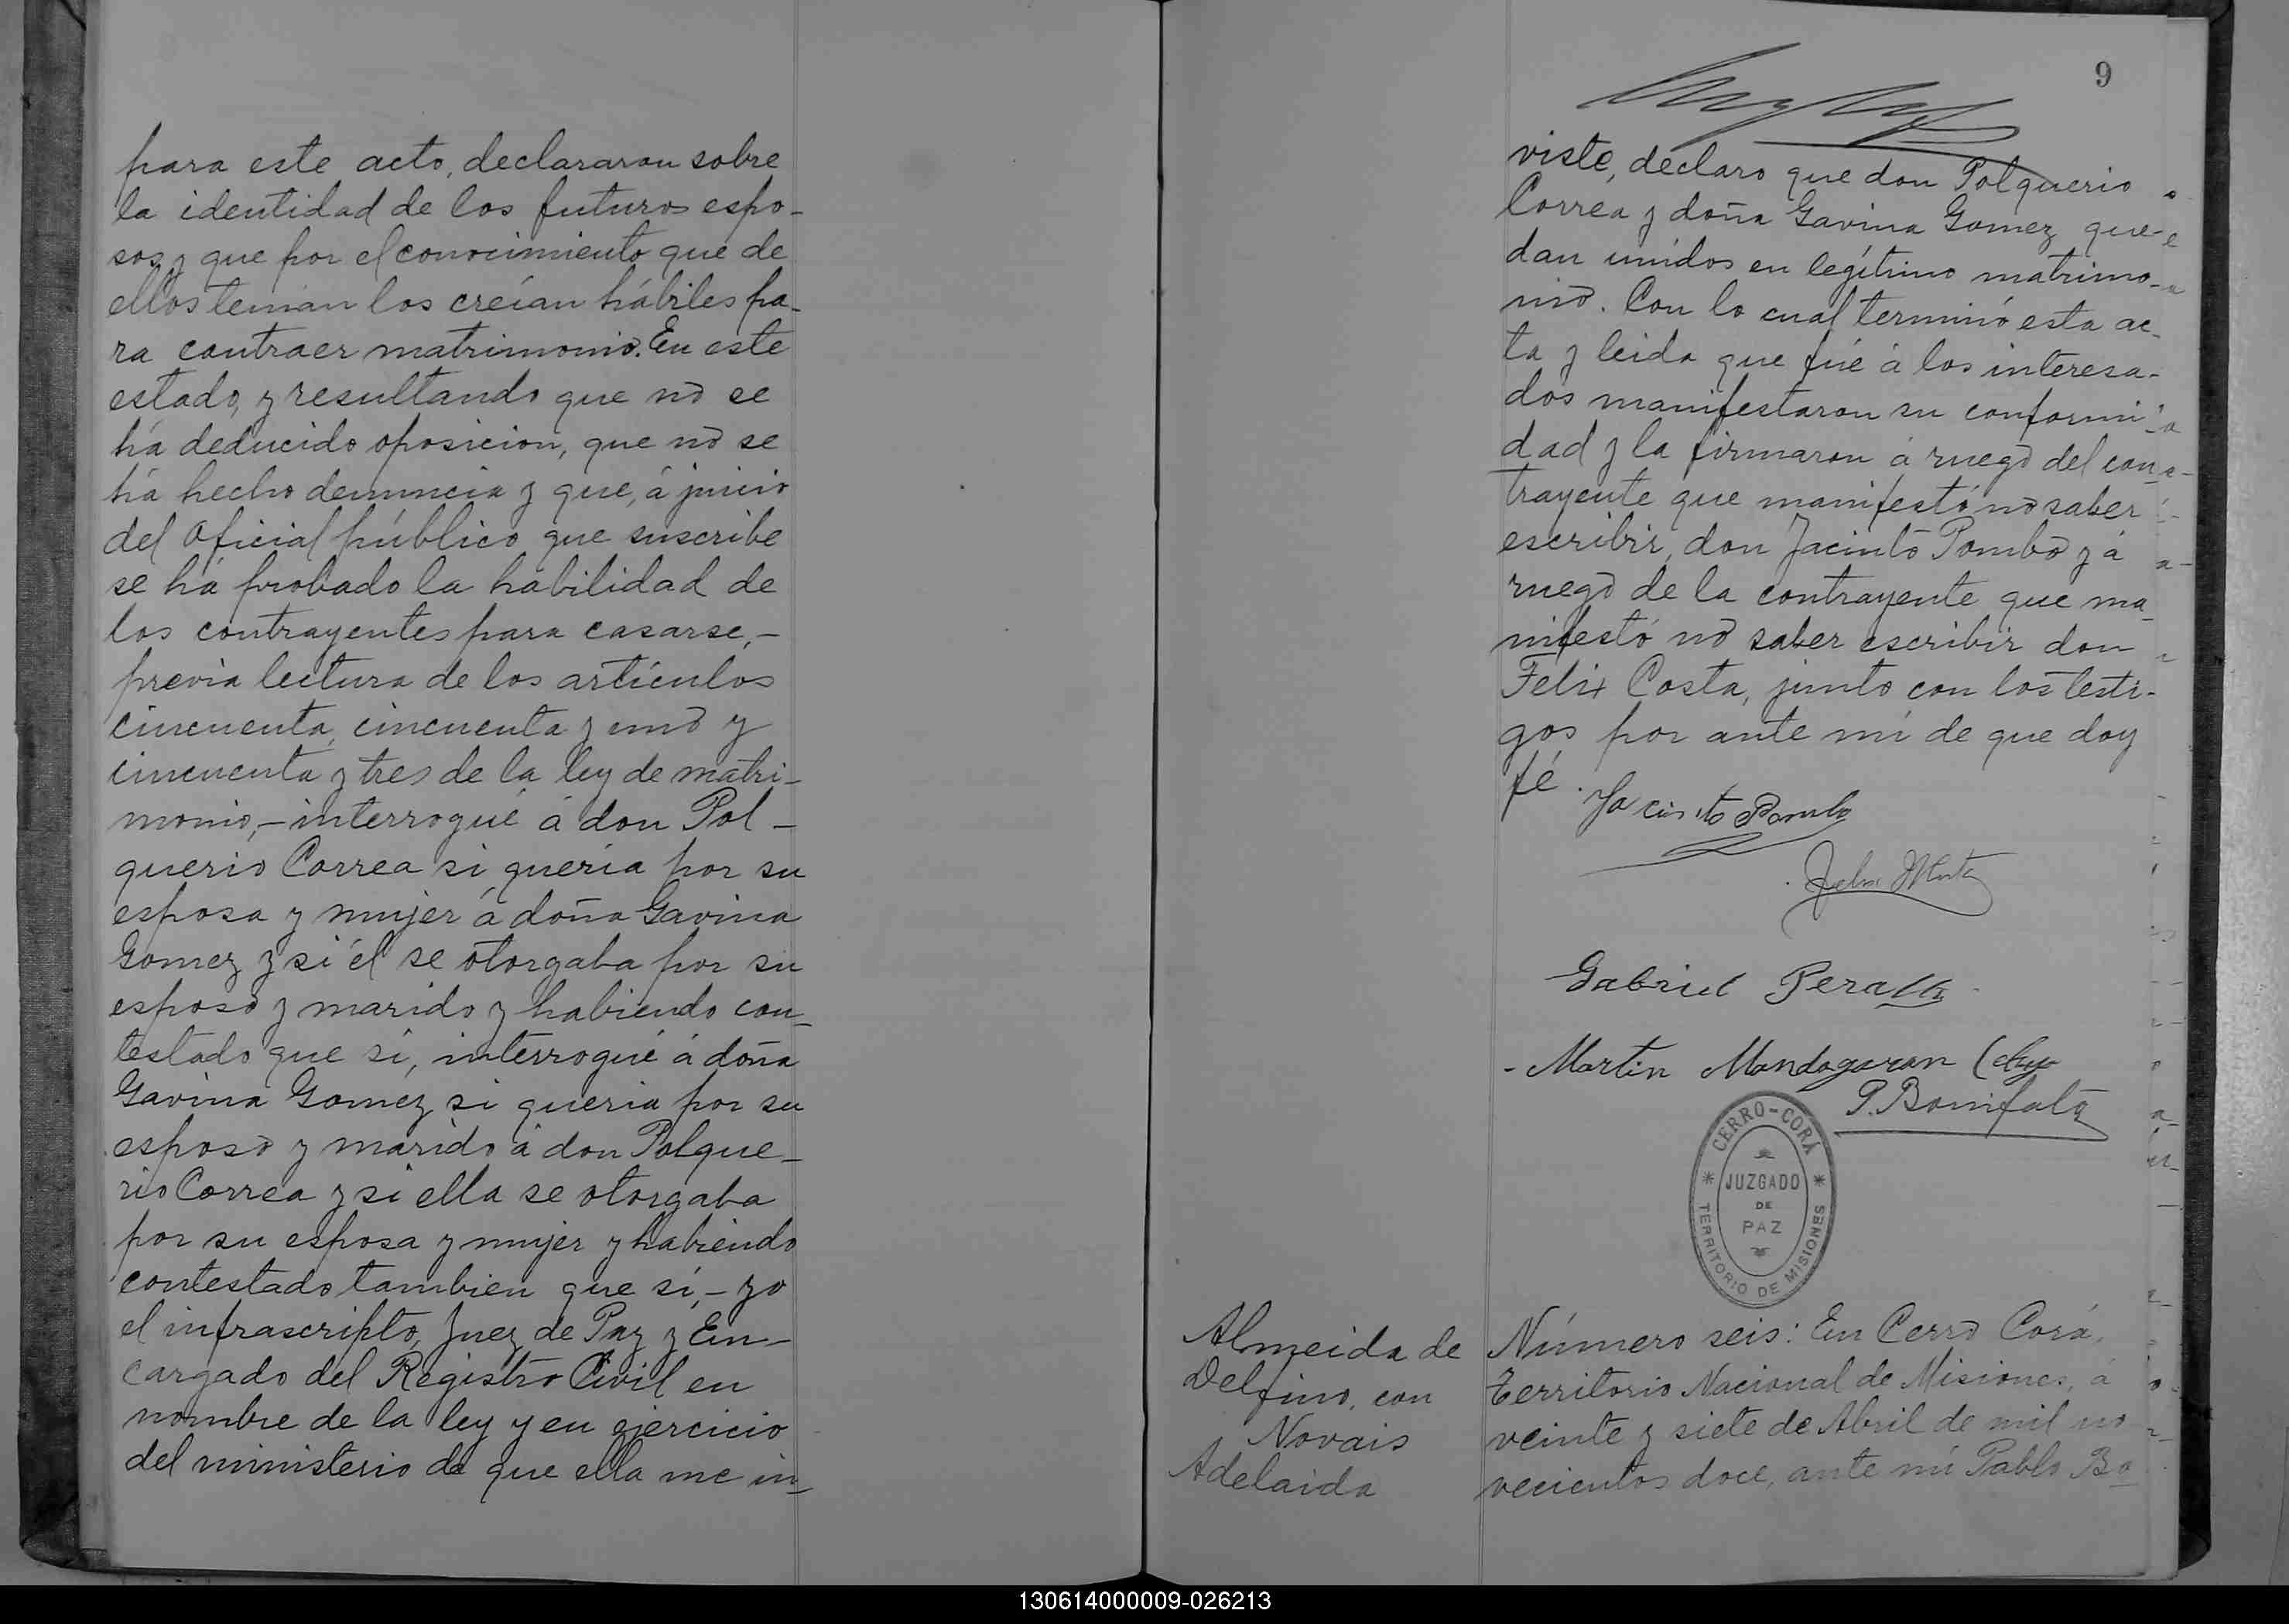 para este acto, declararon sobre
la identidad de los futuros espo-
sos y que por el conocimiento que de
ellos tenian los creían hábiles pa-
ra contraer matrimonio. En este
estado, y resultando que nó se
há deducido oposicion, que nó se
há hecho denuncia y que, á juicio
del Oficial público que suscribe
se há probado la habilidad de
los contrayentes para casarse,-
previa lectura de los artículos
cincuenta, cincuenta y uno y
cincuenta y tres de la ley de matri-
monio,- interrogué á don Pol-
querio Correa si quería por su
esposa y mujer á doña Gavina
Gomez y si él se otorgaba por su
esposo y marido y habiendo con-
testado que sí, interrogué á doña
Gavina Gomez si queria por su
esposo y marido á don Polque-
rio Correa y si ella se otorgaba
por su esposa y mujer y habiendo
contestado tambien que sí,- yo
el infrascripto, Juez de Paz y En-
cargado del Registro Civil en
nombre de la ley y en ejercicio
del ministerio de que ella me in-
9
viste, declaro que don Polquerio
Correa y doña Gavina Gomez que-
dan unidos en legítimo matrimo-
nio. Con lo cual terminó esta ac-
ta y leida que fué á los interesa-
dos manifestaron su conformi-
dad y la firmaron á ruego del con-
trayente que manifestó no saber
escribir, don Jacinto Pombo y á
ruego de la contrayente que ma-
nifestó nó saber escribir don
Felix Costa, junto con los testi-
gos por ante mí de que doy
fé.
Jacinto Pombo
Gabriel Peralta
Martin Mondagaran
P. Bonifato
CERRO-CORÁ
JUZGADO
DE
PAZ
TERRITORIO DE MISIONES
Almeida de
Delfino, con
Novais
Adelaida
Número seis: En Cerro Corá,
Territorio Nacional de Misiones, á
veinte y siete de Abril de mil no
vecientos doce, ante mí Pablo Bo-
130614000009-026213